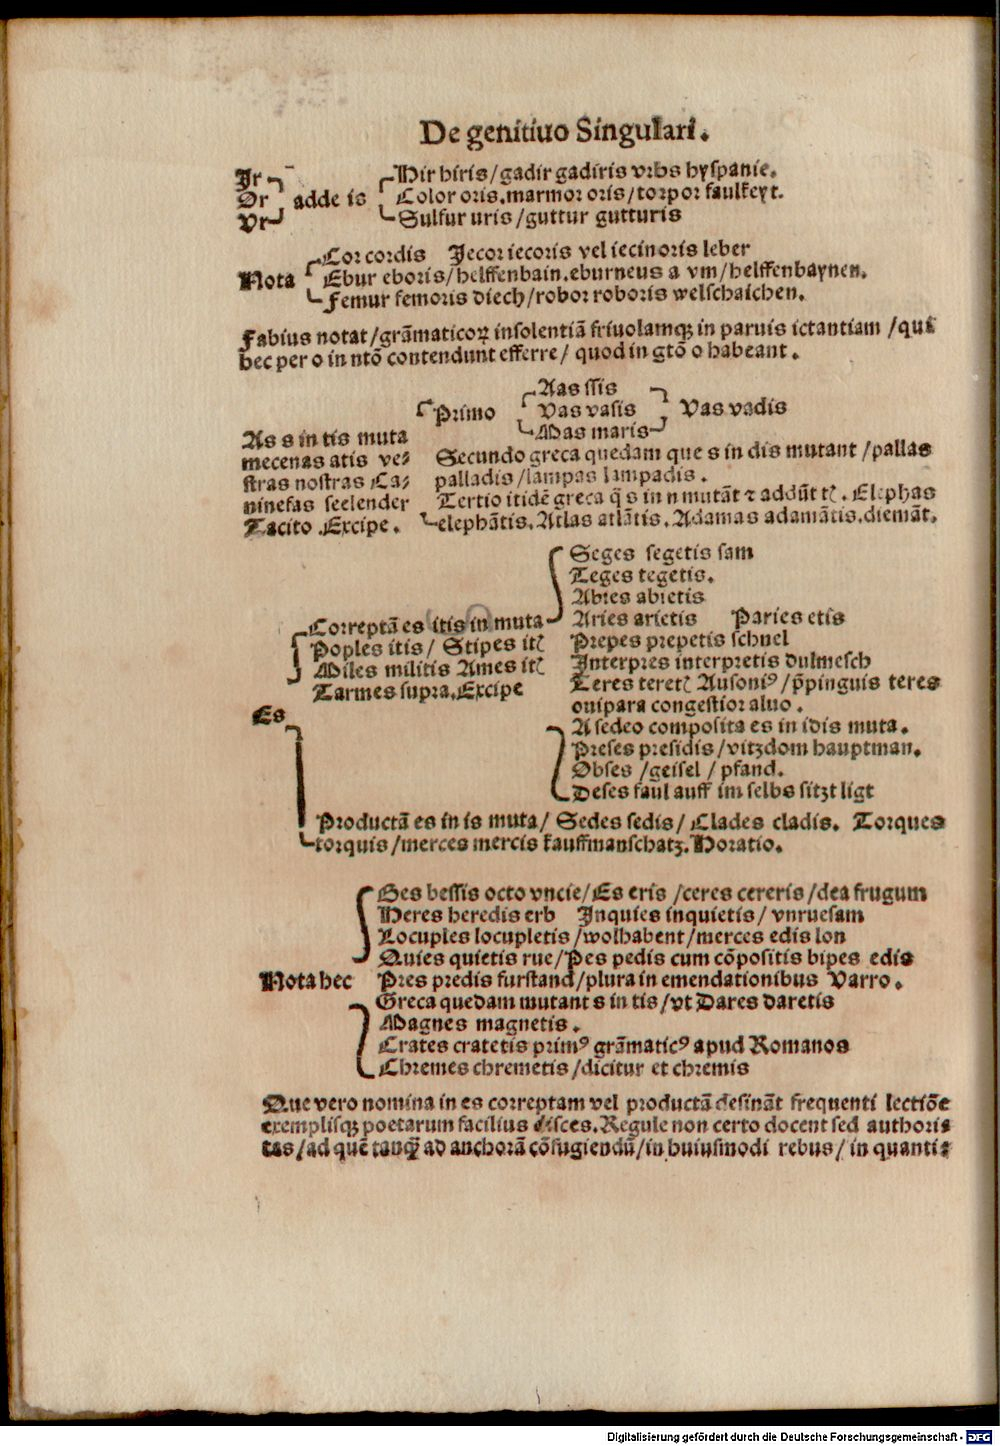 De genitiuo Singulari.
Ir
Or adde is
Vr
Hir hiris/gadir gadiris vrbs hyspanie.
Color oris.marmor oris/torpor faulkeyt.
Sulfur uris/guttur gutturis
Nota
Cor cordis Jecor iecoris vel iecinoris leber
Ebur eboris/helffenbain.eburneus a vm/helffenbaynen.
Femur femoris diech/robor roboris welschaichen.
Fabius notat/grãmaticoꝝ insolentiã friuolamqꝫ in paruis ictantiam /qui
hec per o in ntõ contendunt efferre/ quod in gtõ o habeant.
As s in tis muta
mecenas atis ve⸗
stras nostras Ca⸗
ninefas seelender
Tacito .Excipe.
Primo
Aas ssis
Vas vasis Vas vadis
Mas maris
Secundo greca quedam que s in dis mutant /pallas
palladis/lampas lampadis.
Tertio itidẽ greca q̃ s in n mutãt ⁊ addũt tꝭ. Elephas
elephãtis.Atlas atlãtis.Adamas adamãtis.diemãt.
Es
Correptã es itis in muta
Poples itis/ Stipes itꝭ
Miles militis Ames itꝭ
Tarmes supra.Excipe
Seges segetis sam
Teges tegetis.
Abies abietis
Aries arietis Paries etis
Prepes prepetis schnel
Interpres interpretis dulmesch
Teres teretꝭ Ausoniꝰ/p̃pinguis teres
ouipara congestior aluo.
A sedeo composita es in idis muta.
Preses presidis/vitzdom hauptman.
Obses /geisel /pfand.
Deses faul auff im selbs sitzt ligt
Productã es in is muta/ Sedes sedis/ Clades cladis. Torques
torquis/merces mercis kauffmanschatz.Horatio.
Nota hec
Bes bessis octo vncie/Es eris /ceres cereris/dea frugum
Heres heredis erb Inquies inquietis/ vnruesam
Locuples locupletis/wolhabent/merces edis lon
Quies quietis rue/Pes pedis cum cõpositis bipes edis
Pres predis furstand/plura in emendationibus Varro.
Greca quedam mutant s in tis/vt Dares daretis
Magnes magnetis.
Crates cratetis primꝰ grãmaticꝰ apud Romanos
Chremes chremetis/dicitur et chremis
Que vero nomina in es correptam vel productã desinãt frequenti lectiõe
exemplisqꝫ poetarum facilius disces.Regule non certo docent sed authori⸗
tas/ad quẽ tanqꝫ̃ ad anchorã cõfugiendũ/in huiusmodi rebus/ in quanti⸗
Digitalisierung gefördert durch die Deutsche Forschungsgemeinschaft - DFG